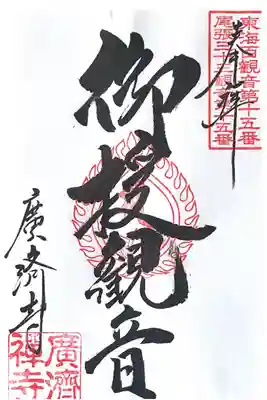 東海百観音第十五番
尾張三十三観音第十五番
奉拝
御授観音
廣濟寺
廣濟
禅寺